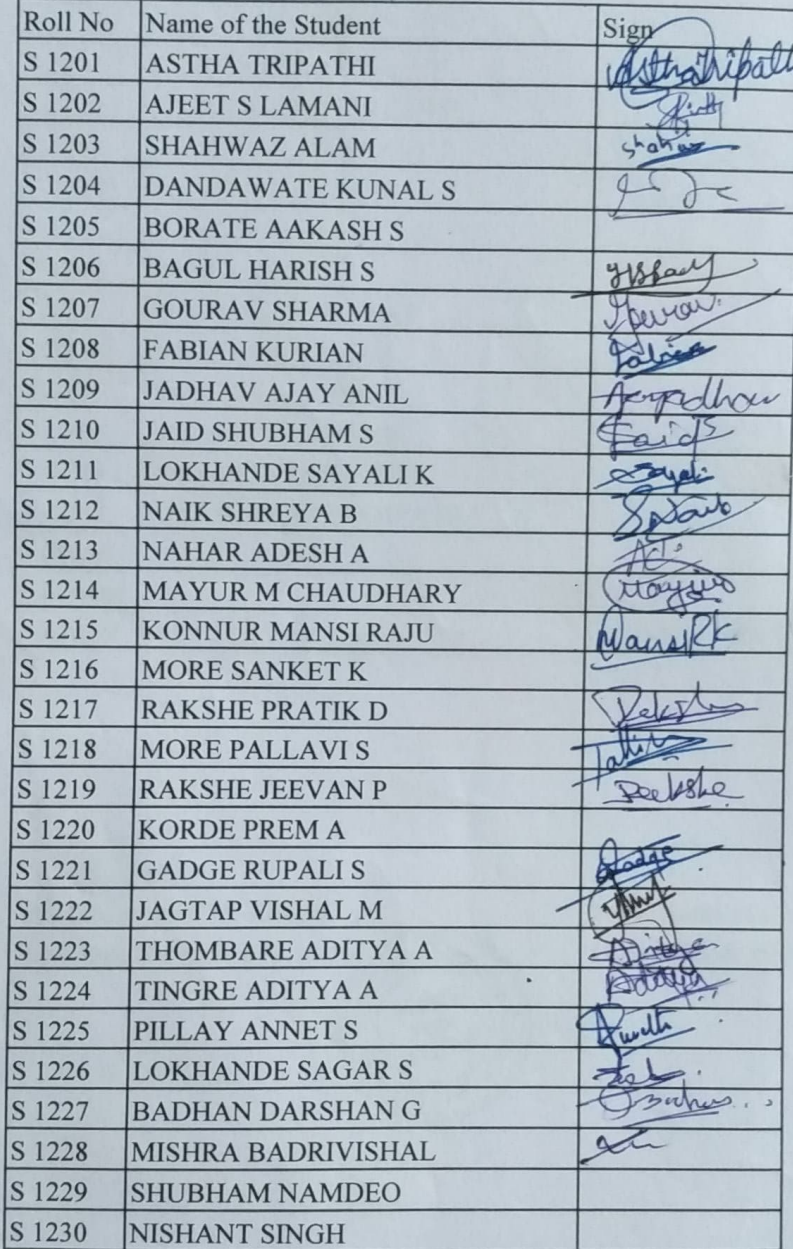 Roll No Name of the Student Sign
S 1201 ASTHA TRIPATHI AsthaTripathi
S 1202 AJEET S LAMANI
S 1203 SHAHWAZ ALAM
S 1204 DANDAWATE KUNAL S
S 1205 BORATE AAKASH S
S 1206 BAGUL HARISH S
S 1207 GOURAV SHARMA
S 1208 FABIAN KURIAN
S 1209 JADHAV AJAY ANIL
S 1210 JAID SHUBHAM S
S 1211 LOKHANDE SAYALI K Sayali
S 1212 NAIK SHREYA B
S 1213 NAHAR ADESH A
S 1214 MAYUR M CHAUDHARY
S 1215 KONNUR MANSI RAJU MansiRK
S 1216 MORE SANKET K
S 1217 RAKSHE PRATIK D
S 1218 MORE PALLAVI S
S 1219 RAKSHE JEEVAN P
S 1220 KORDE PREM A
S 1221 GADGE RUPALI S Gadge
S 1222 JAGTAP VISHAL M
S 1223 THOMBARE ADITYA A Aditya
S 1224 TINGRE ADITYA A Aditya
S 1225 PILLAY ANNET S
S 1226 LOKHANDE SAGAR S
S 1227 BADHAN DARSHAN G
S 1228 MISHRA BADRIVISHAL
S 1229 SHUBHAM NAMDEO
S 1230 NISHANT SINGH